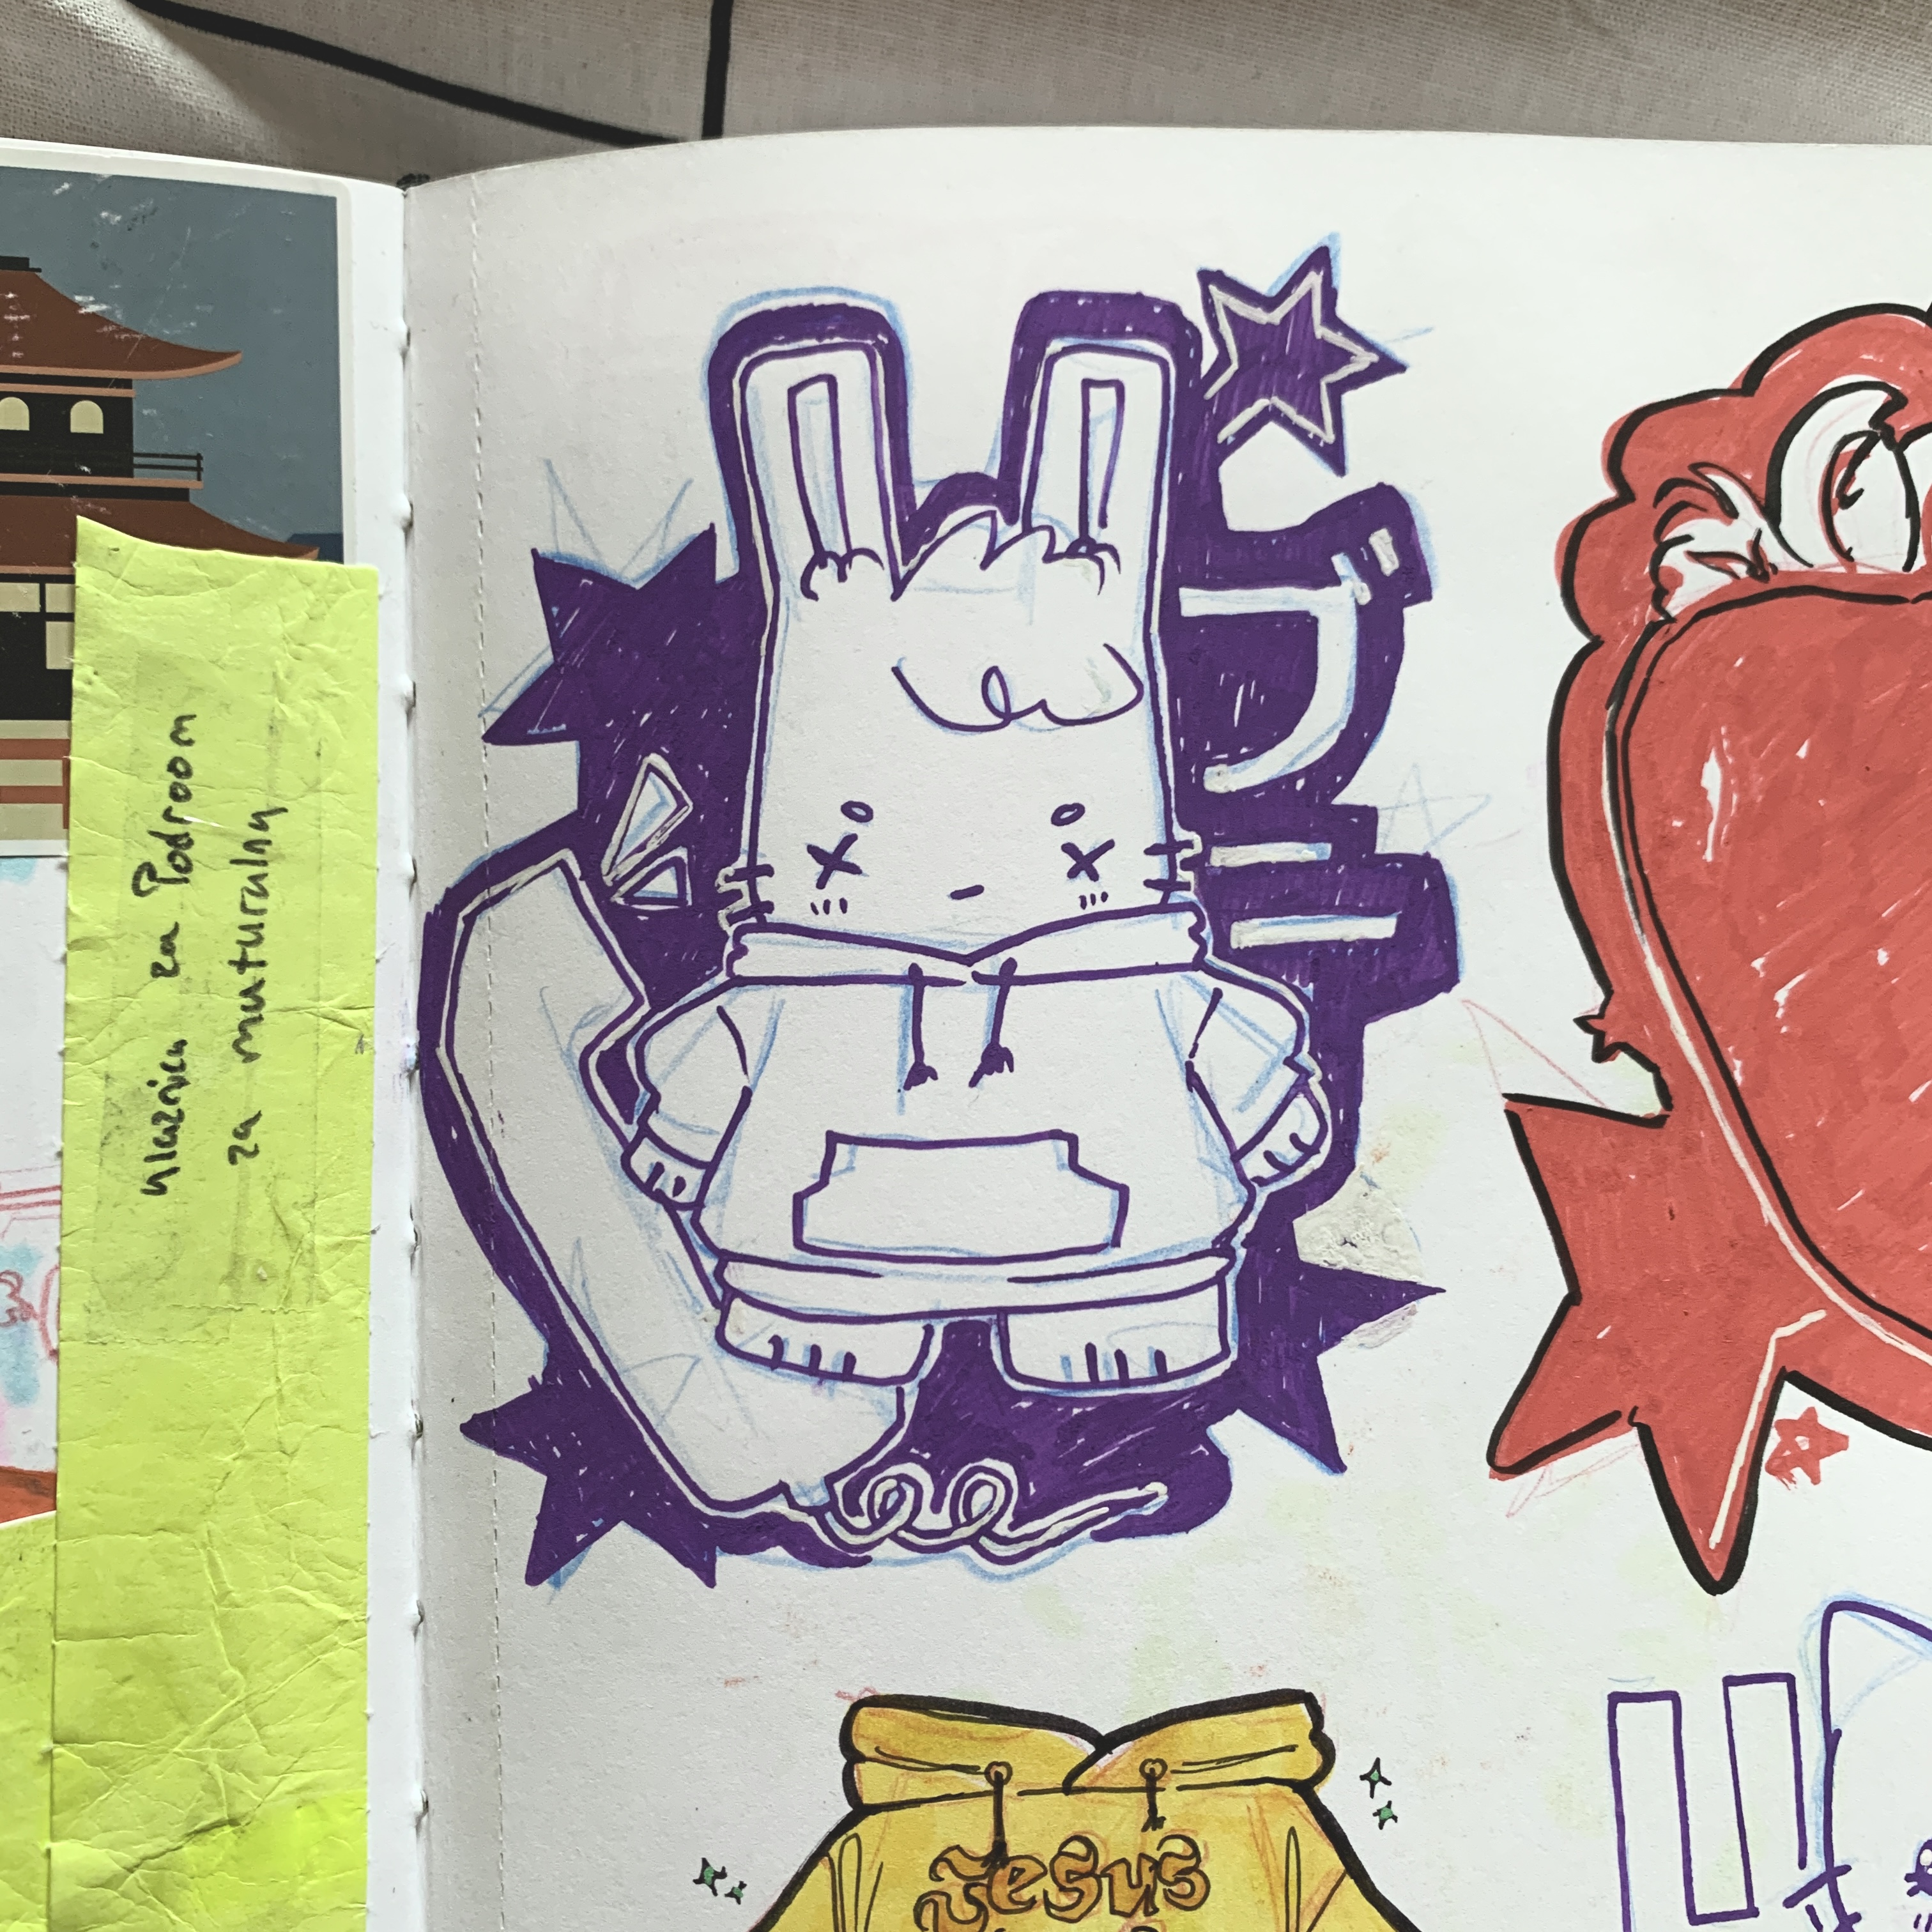 ulaznica za Podroom
za muturalnu
ブ
ニ
Jesus